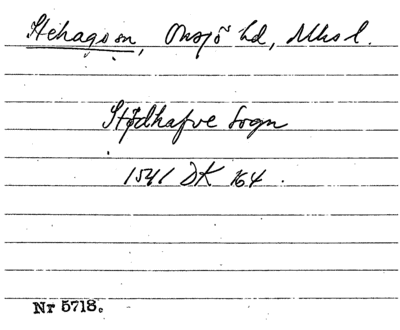 Stehags sn, Onsjö hd, Mhs l.
Stødhafve Sogn
1541 DK 164.
Nr 5718.